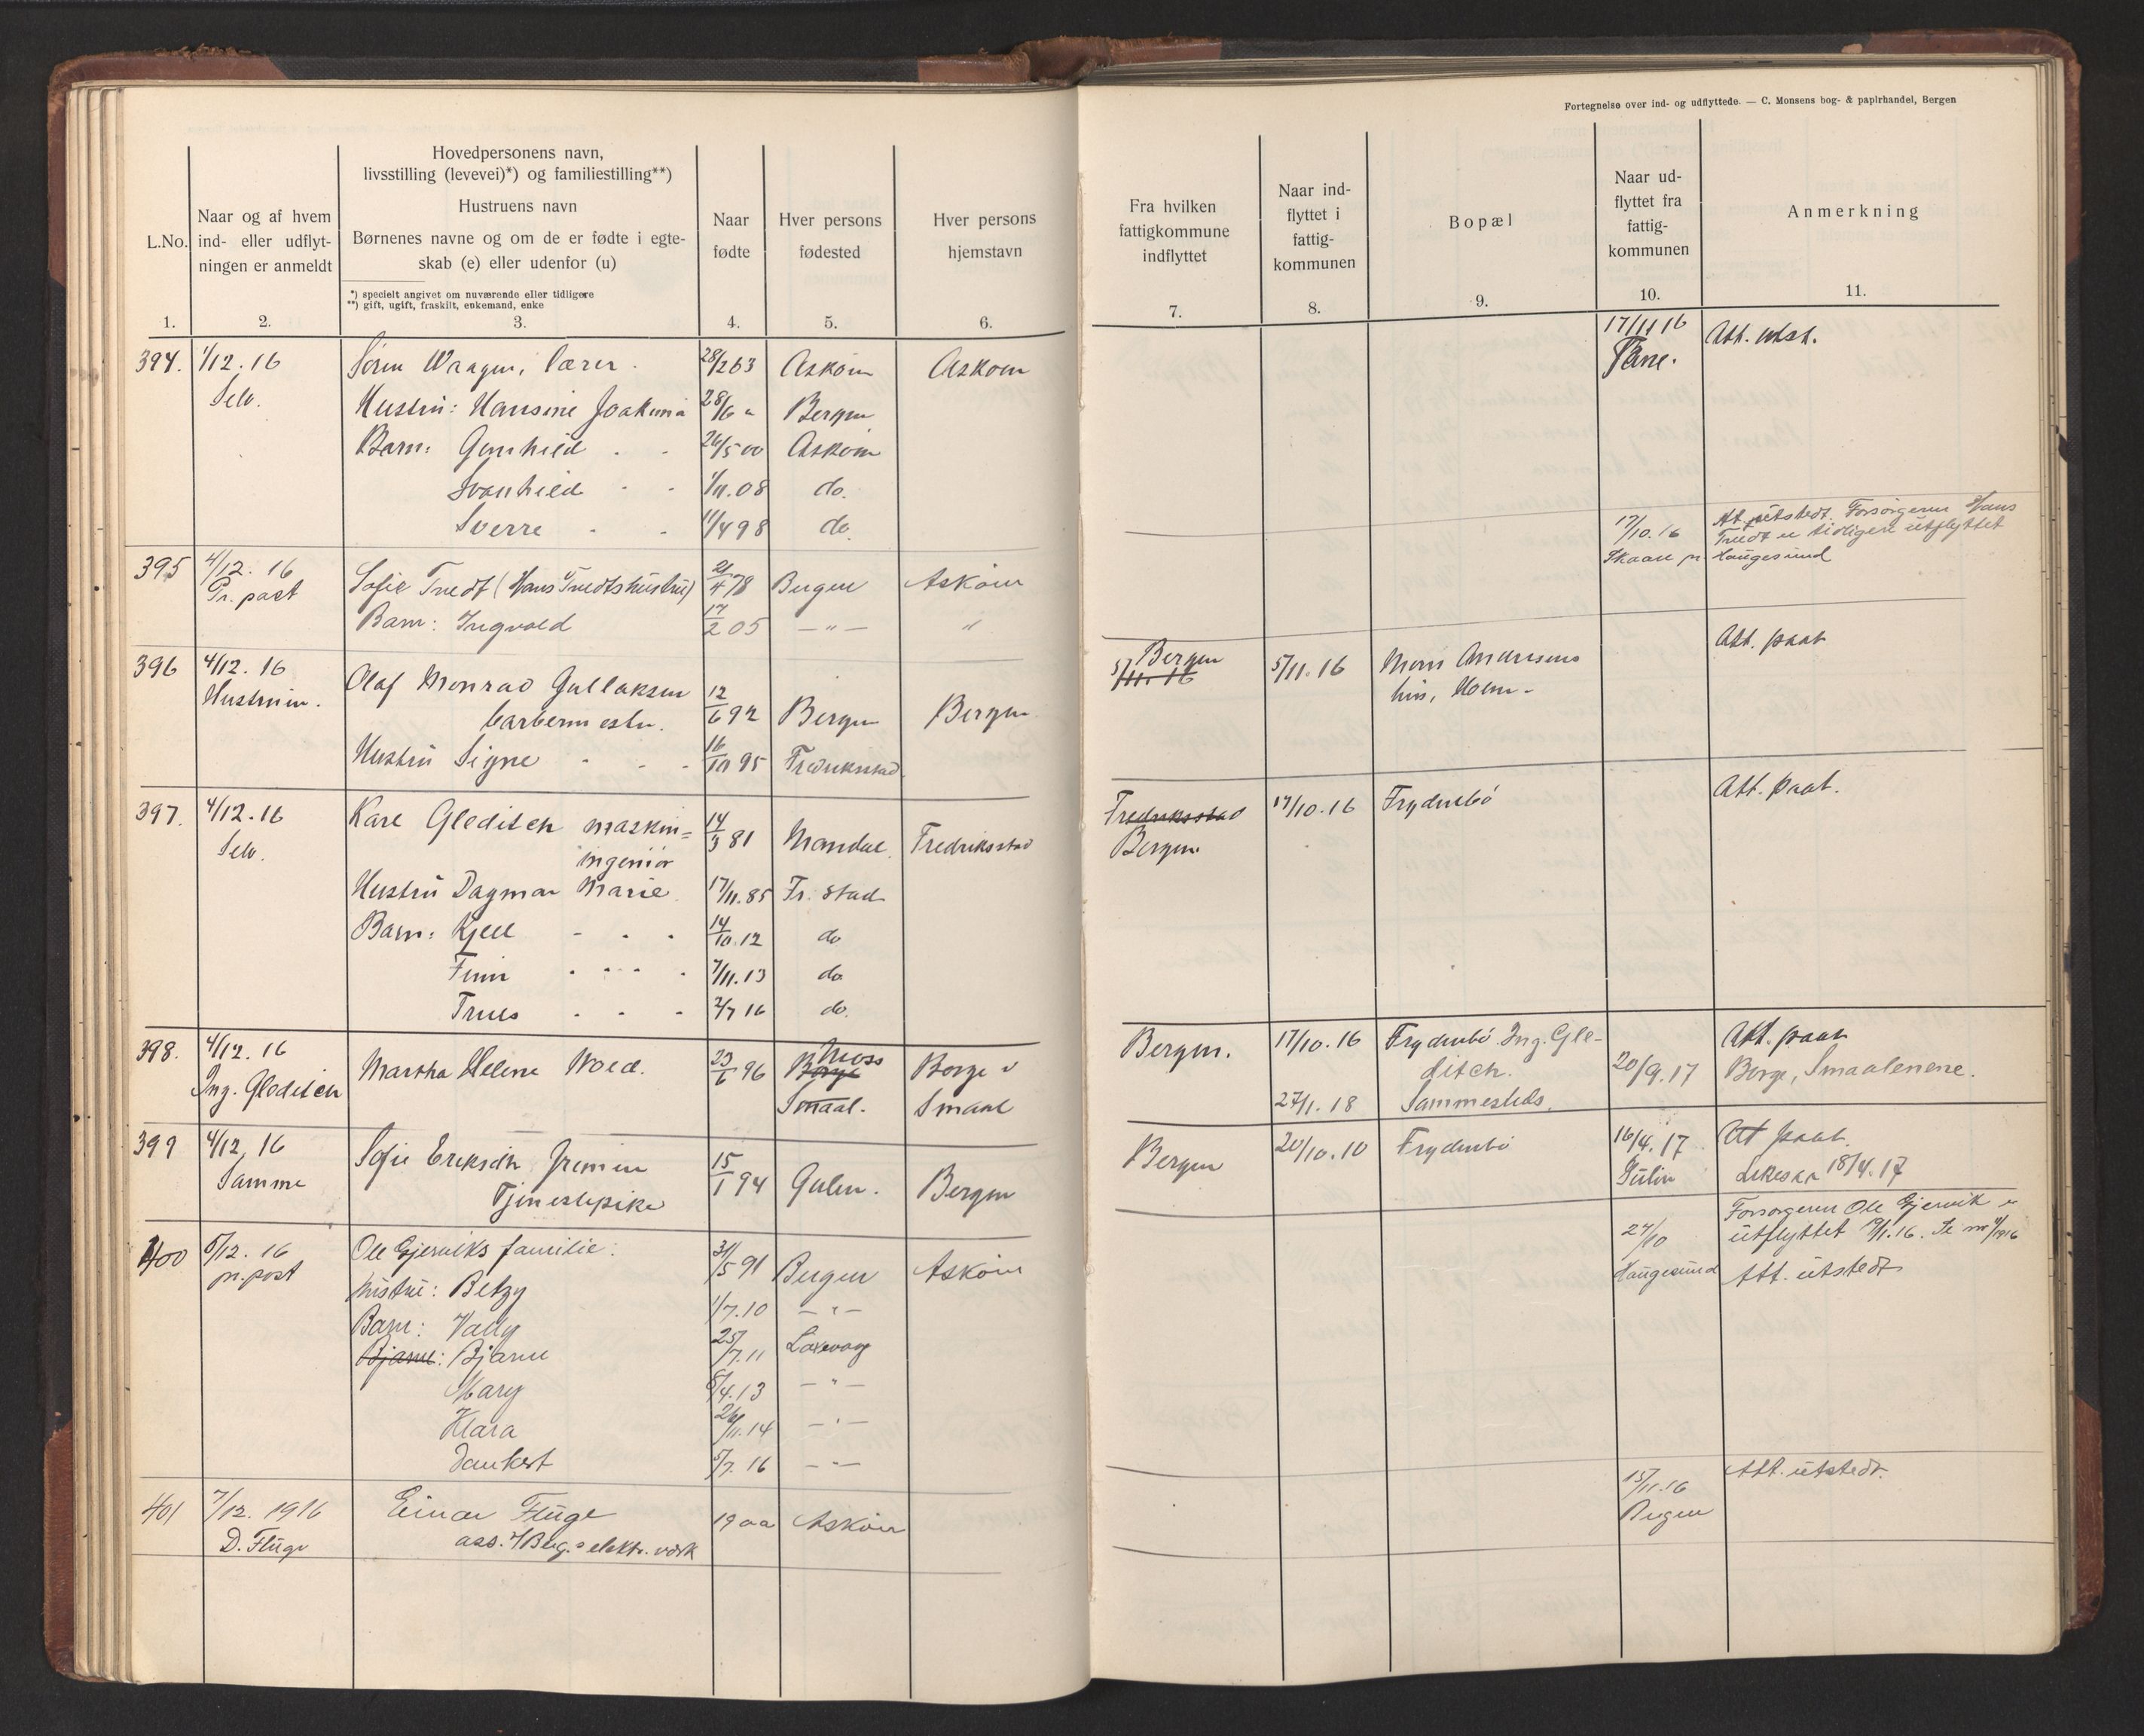 Fortegnelse over ind- og udflyttede. — C. Monsens bog- & papirhandel, Bergen
L.No.
1.
Naar og af hvem
ind- eller udflyt-
ningen er anmeldt
2.
Hovedpersonens navn,
livsstilling (levevei)*) og familiestilling**)
Hustruens navn
Børnenes navne og om de er fødte i egte-
skab (e) eller udenfor (u)
*) specielt angivet om nuværende eller tidligere
**) gift, ugift, fraskilt, enkemand, enke
3.
Naar
fødte
4.
Hver persons
fødested
5.
Hver persons
hjemstavn
6.
Fra hvilken
fattigkommune
indflyttet
7.
Naar ind-
flyttet i
fattig-
kommunen
8.
Bopæl
9.
Naar ud-
flyttet fra
fattig-
kommunen
10.
Anmerkning
11.
394. 1/12. 16 Sören Waagen, lærer. 28/2 63 Asköin Asköin 17/11 16 Att. utst.
Selv. Hustru: Hansine Joakima 28/6 " Bergen
Barn: Gunhild 26/5 00 Asköin
Svanhild 1/11.08 do.
Sverre 11/4 98 do.
395 4/12. 16 Sofie Tvedt (Hans Tvedts hustru) 21/4 78 Bergen Asköin 17/10.16 Att. utstedt. Forsørgeren Hans
Pr. post Tvedt er tidligere utflyttet
Barn: Ingvald 17/2 05 — " — " Haugesund
396 4/12. 16 Olaf Monrad Gullaksen Bergen 5/11. 16 Mons Andersens Att. paat
Hustruen. barbermester. 12/6 92 Bergen Bergen 5/11. 16 hus, Holm.
Hustru Signe 16/10 95 Fredriksstad
397. 4/12. 16 Karl Gleditsch maskin= 14/3 81 Mandal Fredriksstad Fredriksstad 17/10. 16 Frydenbö Att. paat.
Selv. ingeniör Bergen.
Hustru Dagmar Marie 17/11. 85 Fr. stad
Barn: Kjell 14/10. 12 do
Finn 7/11. 13 do
Truls 2/7 16 do.
398. 4/12. 16 Martha Helene Wold. 23/6 96 Borge Moss Borge i Bergen. 17/10. 16 Frydenbö Ing. Gle- 20/9. 17 Att. paat
Ing. Gleditsch Smaal. Smaal ditsch. Borge, Smaalenene.
27/1. 18 Sammesteds.
399 4/12. 16 Sofie Eriksdtr 15/1 94 Gulen. Bergen Bergen 20/10. 10 Frydenbö 16/4. 17 Att paat.
Samme Tjenestepike Gulen 18/4. 17
400 6/12. 16 Ole Gjerviks familie: Asköin 24/10 Forsørgeren Ole Gjervik er
pr. post hustru: Betzy 31/5 91 Bergen Haugesund utflyttet
Barn: Vally 1/7. 10 — " — Att. utstedt
Bjarne: Bjarne 25/7. 11 Laxevaag
Mary 8/4. 13 — " —
Klara 26/11. 14 — " —
Dankert 5/7. 16 — " —
401 7/12. 1916 Einar Fluge 1900 Asköin 15/11. 16 Att. utstedt.
D. Fluge ass. v/ Berg.s elektr. verk Bergen